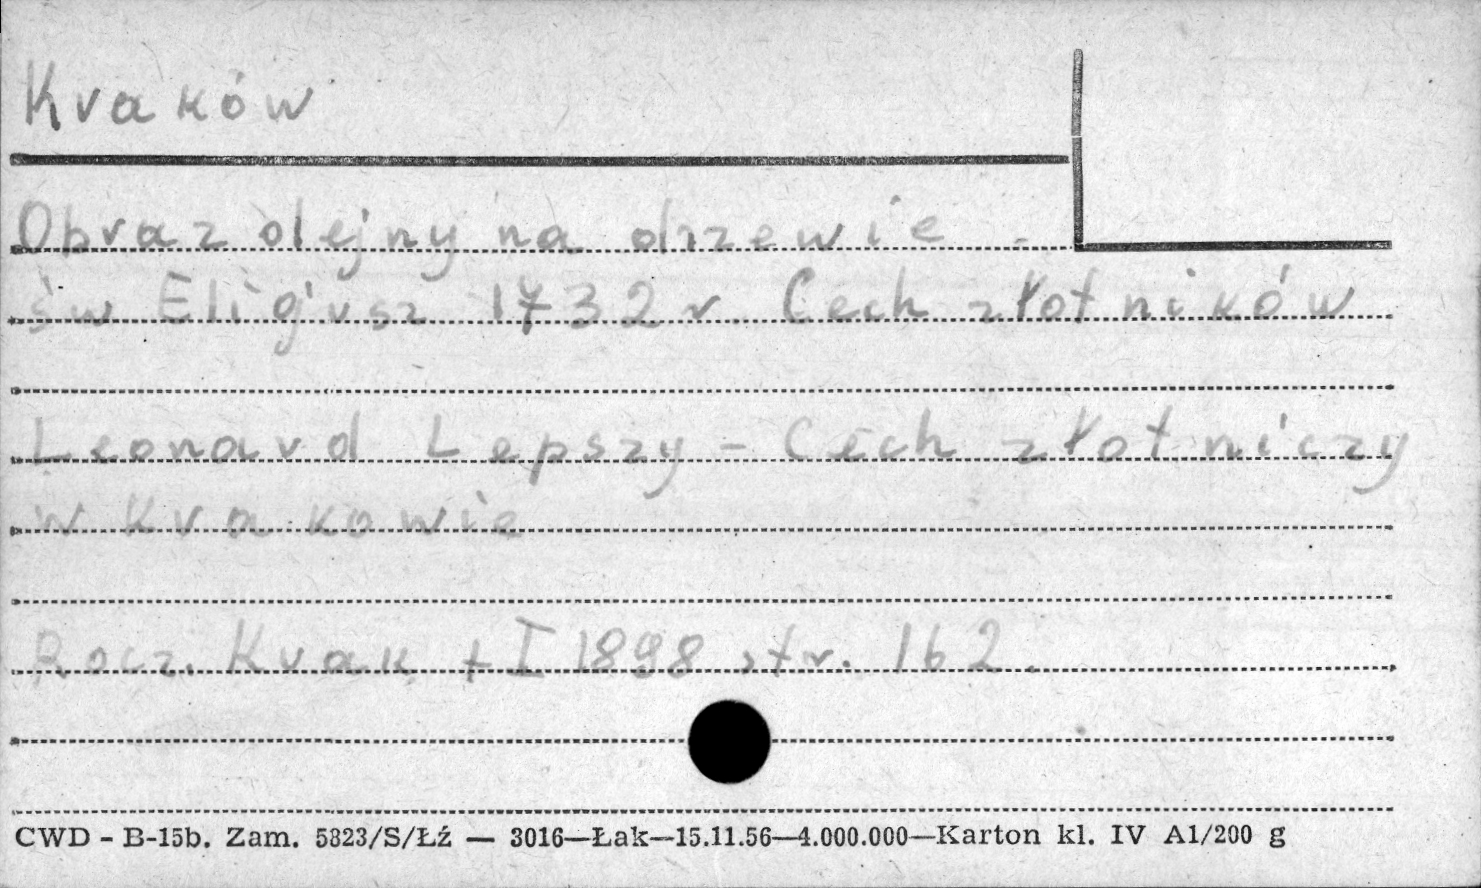 Kraków
Obraz olejny na drzewie -
św Eligiusz 1732 r. Cech złotników
Leonard Lepszy - Cech złotniczy
w Krakowie
Rocz. Krak t I 1898 str. 162.
CWD - B-15b. Zam. 5823/S/Łź — 3016—Łak—15.11.56—4.000.000—Karton kl. IV A1/200 g